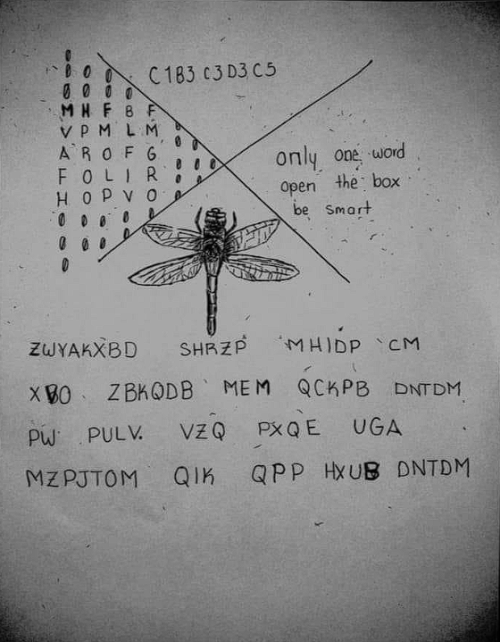 C1B3 C3D3 C5
M H F B F
V P M L M
A R O F G
F O L I R
H O P V O
only one word
open the box
be smart
ZWYAKXBD SHRZP MHIDP CM
XBO ZBKQDB MEM QCKPB DNTDM
PW PULV. VZQ PXQE UGA
MZPJTOM QIK QPP HXUB DNTDM